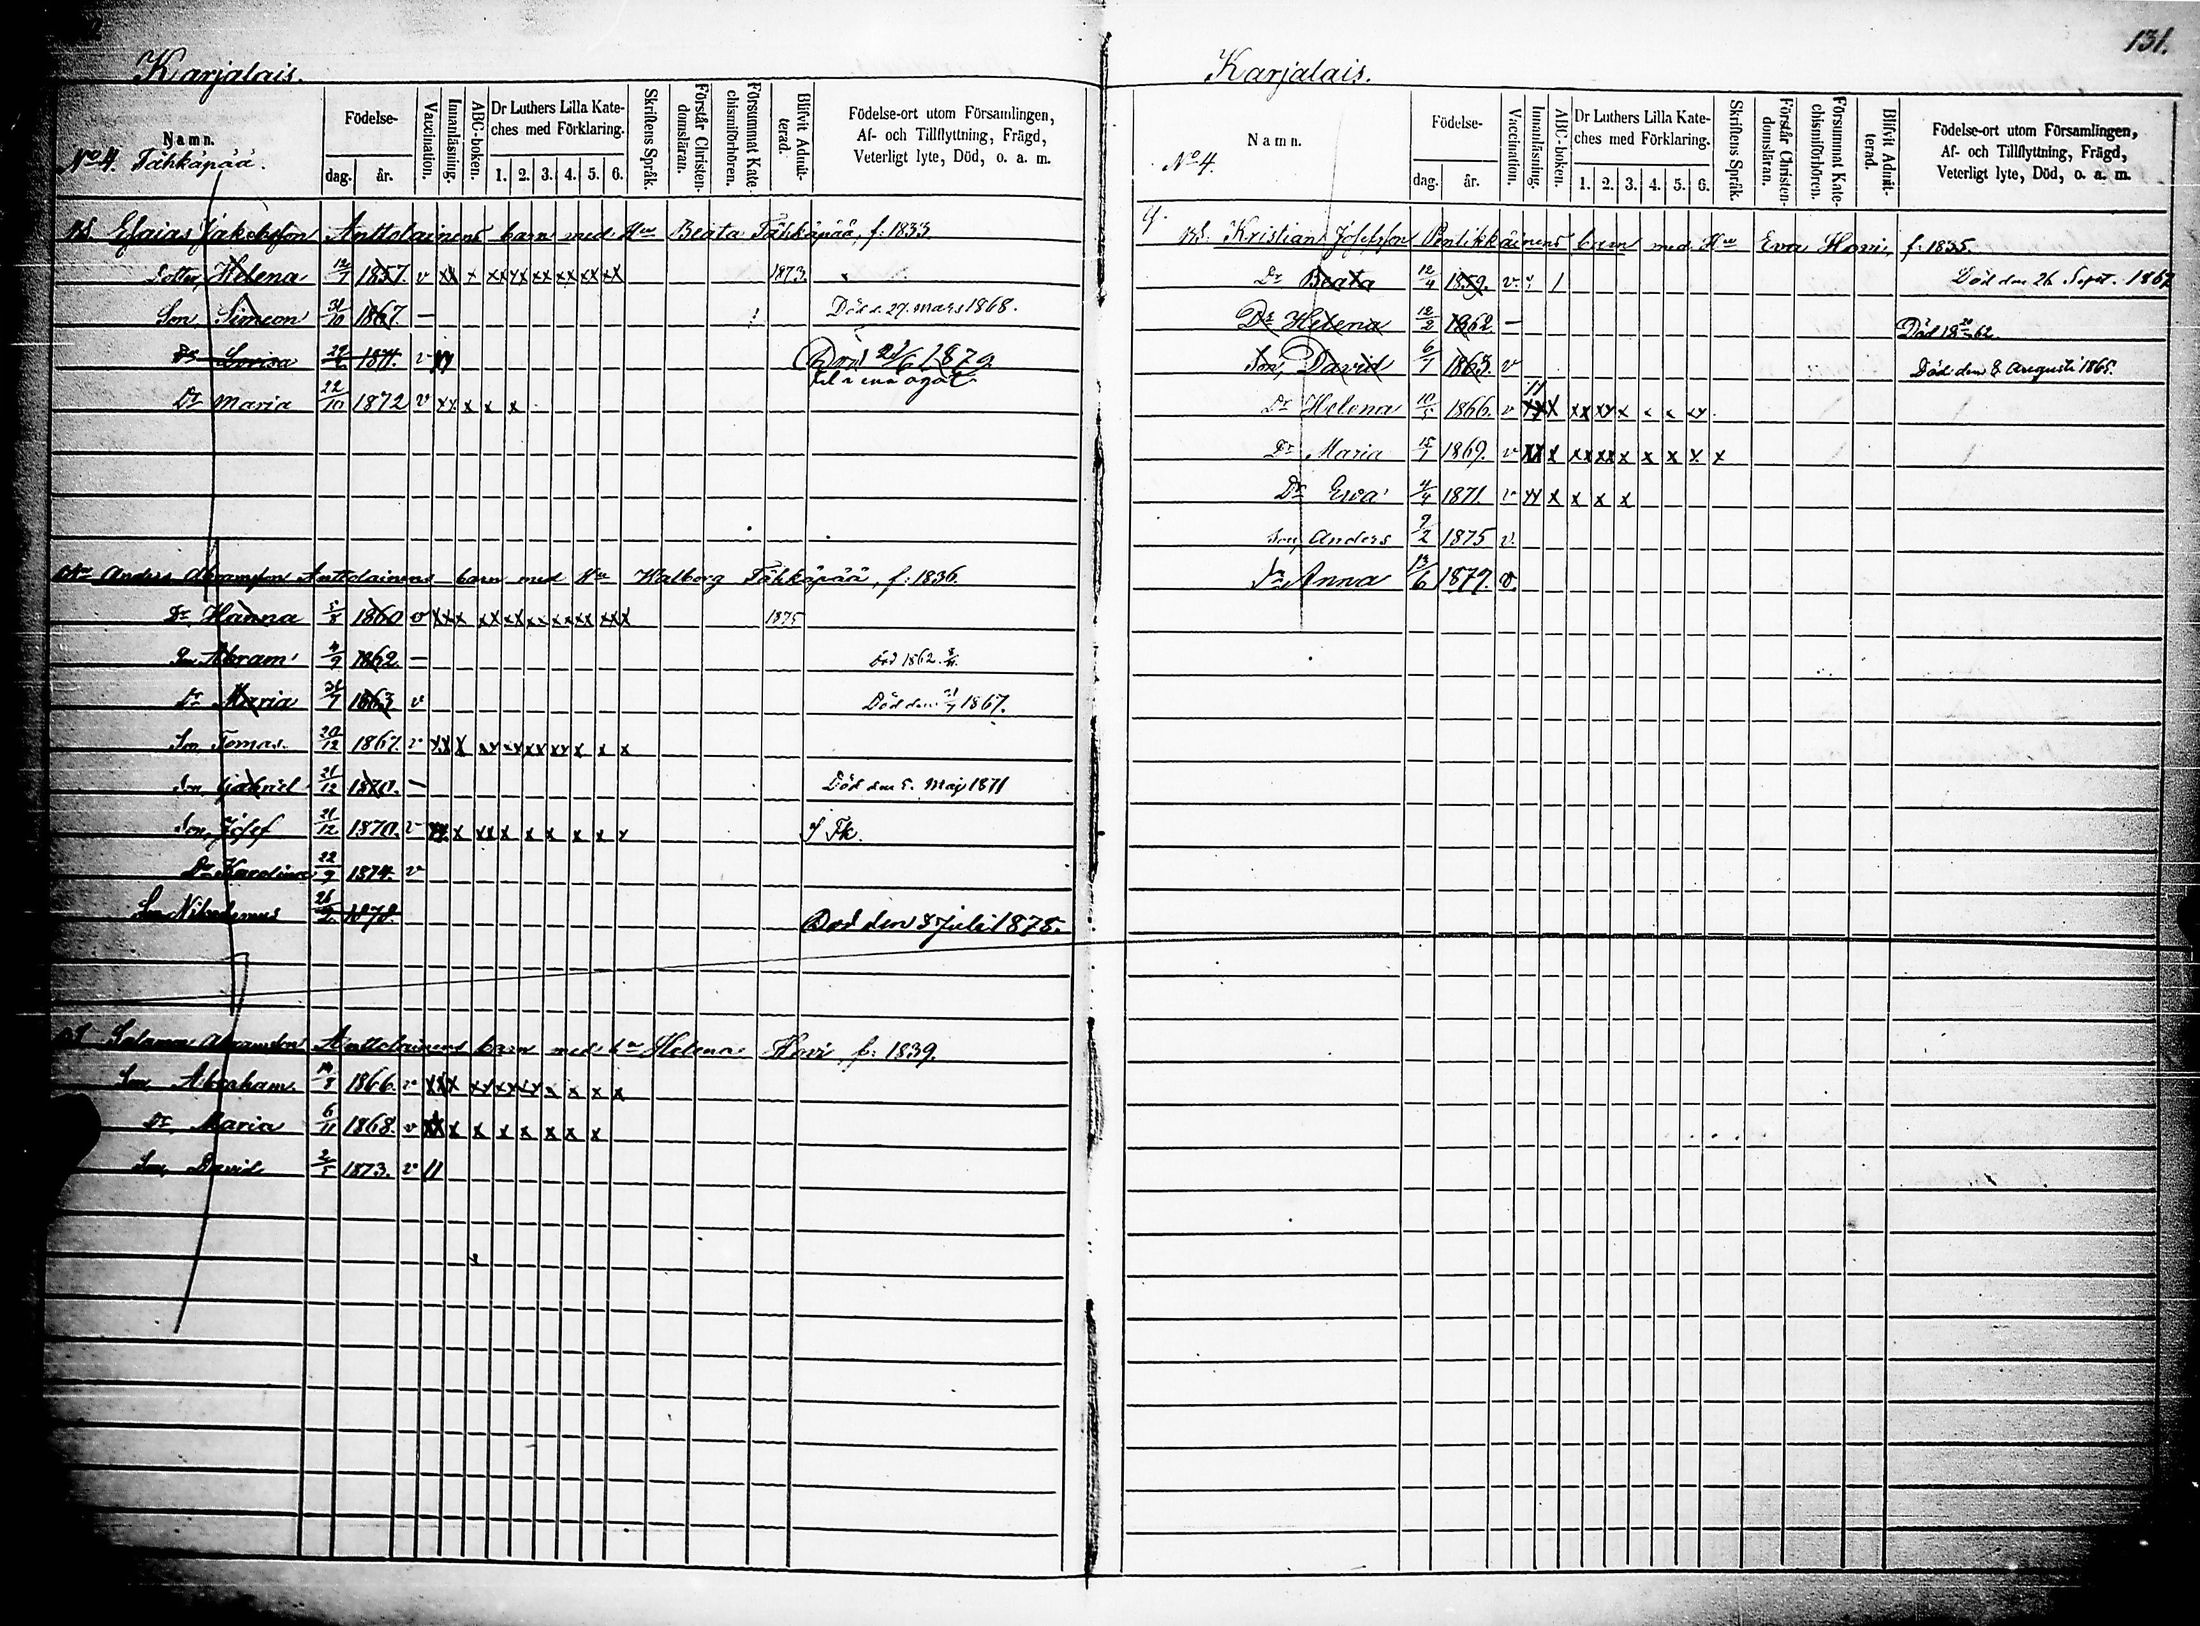 131.
Karjalais.
Namn. Födelse- dag. år. Vaccination. Innanläsning. ABC-boken. Dr Luthers Lilla Kateches med Förklaring. 1. 2. 3. 4. 5. 6. Skriftens Språk. Förstår Christendomsläran. Försummat Katechismiförhören. Blifvit Admitterad. Födelse-ort utom Församlingen, Af- och Tillflyttning, Frägd, Veterligt lyte, Död, o. a. m.
No 4. Tähkäpää.
Esaias Jakobsson Anttolainens barn med Hu Beata Tähkäpää, f. 1833.
Dotter, Helena 12/7 1857. v xx x xx xx xx xx xx xx 1873.
Son Simeon 31/10 1867. – Död d. 29. mars 1868.
Dr Lovisa 1871. v Död 21/6 1879
Dr Maria 22/10 1872 v xx x x x
Anders Abramsson Anttolainens barn med Hu Walborg Tähkäpää, f. 1836.
Dr Hanna 5/8 1860 v xx x xx xx xx xx xx xxx 1875
Son Abram 4/9 1862 – Död 1862.
Dr Maria 31/7 1863 v Död den 1867.
Son Tomas 20/12 1867. v xx x xx xx xx xx x x x
Son, Gabriel 21/12 1870. – Död den 5. Maj 1871
Son, Josef 21/12 1870. v xx x xx x x x x x x Tk.
Dr Karolina 22/9 1874. v
Son Nikodemus 1878. Död den 8 Juli 1878.
Salomon Abramsson Anttolainens barn med Hu Helena Hovi, f. 1839.
Son Abraham 1866. v xx x xx xx xx x x x x
Dr, Maria 6/11 1868. v xx x x x x x x
Son, David 2/5 1873. v 11
Karjalais.
Namn. Födelse- dag. år. Vaccination. Innanläsning. ABC-boken. Dr Luthers Lilla Kateches med Förklaring. 1. 2. 3. 4. 5. 6. Skriftens Språk. Förstår Christendomsläran. Försummat Katechismiförhören. Blifvit Admitterad. Födelse-ort utom Församlingen, Af- och Tillflyttning, Frägd, Veterligt lyte, Död, o. a. m.
No 4.
Kristian Josefsson Pentikkäinens barn med Hu Eva Hovi, f. 1835.
Dr Beata 12/4 1859. v. Död den 26 Sept. 1867
Dr Helena 12/2 1862 – Död 18 62
Son, David 6/7 1863. v Död den 8 Augusti 1865.
Dr Helena 10/5 1866. v xx x xx xx x x x xx
Dr Maria 15/7 1869. v xx x xx xx x x x x x
Dr Eva 4/4 1871. v xx x x x x
Son, Anders 9/2 1875 v.
Dr Anna 13/6 1877. v.